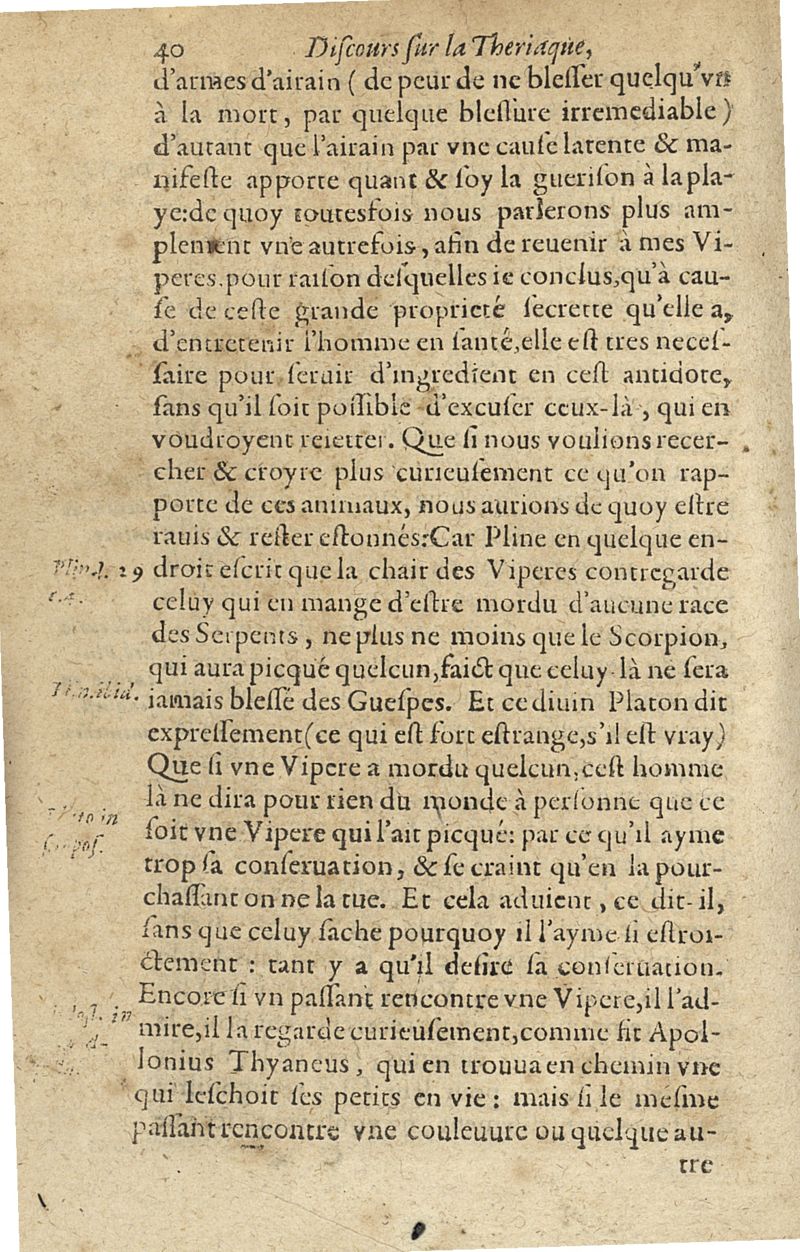 40 Diſcours ſur la Theriaque,
d'armes d'airain ( de peur de ne bleſſer quelqu'vn
à la mort, par quelque bleſſure irremediable)
d'autant que l'airain par vne cauſe latente & ma-
nifeſte apporte quant & ſoy la gueriſon à la pla-
ye:de quoy toutesfois nous parlerons plus am-
plement vne autrefois, afin de reuenir à mes Vi-
peres.pour raiſon deſquelles ie conclus,qu'à cau-
ſe de ceſte grande proprieté ſecrette qu'elle a,
d'entretenir l'homme en ſanté,elle eſt tres neceſ-
ſaire pour ſeruir d'ingredient en ceſt antidote,
ſans qu'il ſoit poſſible d'excuſer ceux-là, qui en
voudroyent reietter. Que ſi nous voulions recer-
cher & croyre plus curieuſement ce qu'on rap-
porte de ces animaux, nous aurions de quoy eſtre
rauis & reſter eſtonnés:Car Pline en quelque en-
Plin.l. 29 droit eſcrit que la chair des Viperes contregarde
celuy qui en mange d'eſtre mordu d'aucune race
des Serpents, ne plus ne moins que le Scorpion,
qui aura picqué quelcun,faict que celuy-là ne ſera
iamais bleſſé des Gueſpes. Et ce diuin Platon dit
expreſſement(ce qui eſt fort eſtrange,s'il eſt vray)
Que ſi vne Vipere a mordu quelcun,ceſt homme
là ne dira pour rien du monde à perſonne que ce
ſoit vne Vipere qui l'ait picqué: par ce qu'il ayme
trop ſa conſeruation, & ſe craint qu'en la pour-
chaſſant on ne la tue. Et cela aduient, ce dit-il,
ſans que celuy ſache pourquoy il l'ayme ſi eſtroi-
ctement : tant y a qu'il deſire ſa conſeruation.
Encore ſi vn paſſant rencontre vne Vipere,il l'ad-
mire,il la regarde curieuſement,comme fit Apol-
lonius Thyaneus, qui en trouua en chemin vne
qui leſchoit ſes petits en vie : mais ſi le meſme
paſſant rencontre vne couleuure ou quelque au-
tre